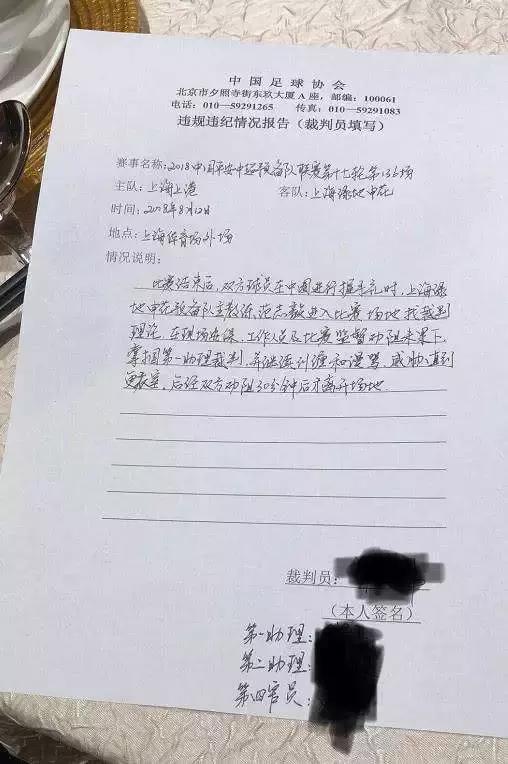 中国足球协会
北京市夕照寺街东玖大厦A座，邮编：100061
电话：010—59291265 传真：010—59291083
违规违纪情况报告（裁判员填写）
赛事名称：2018中国平安中超预备队联赛第十七轮第136场
主队：上海上港 客队：上海绿地申花
时间：2018年8月12日
地点：上海体育场外场
情况说明：
比赛结束后，双方球员在中圈进行握手礼时，上海绿
地申花预备队主教练范志毅进入比赛场地找裁判
理论，在现场安保、工作人员及比赛监督劝阻未果下，
掌掴第一助理裁判，并继续纠缠和漫骂，威胁直到
更衣室，后经双方劝阻30分钟后才离开场地
裁判员：
（本人签名）
第一助理：
第二助理：
第四官员：